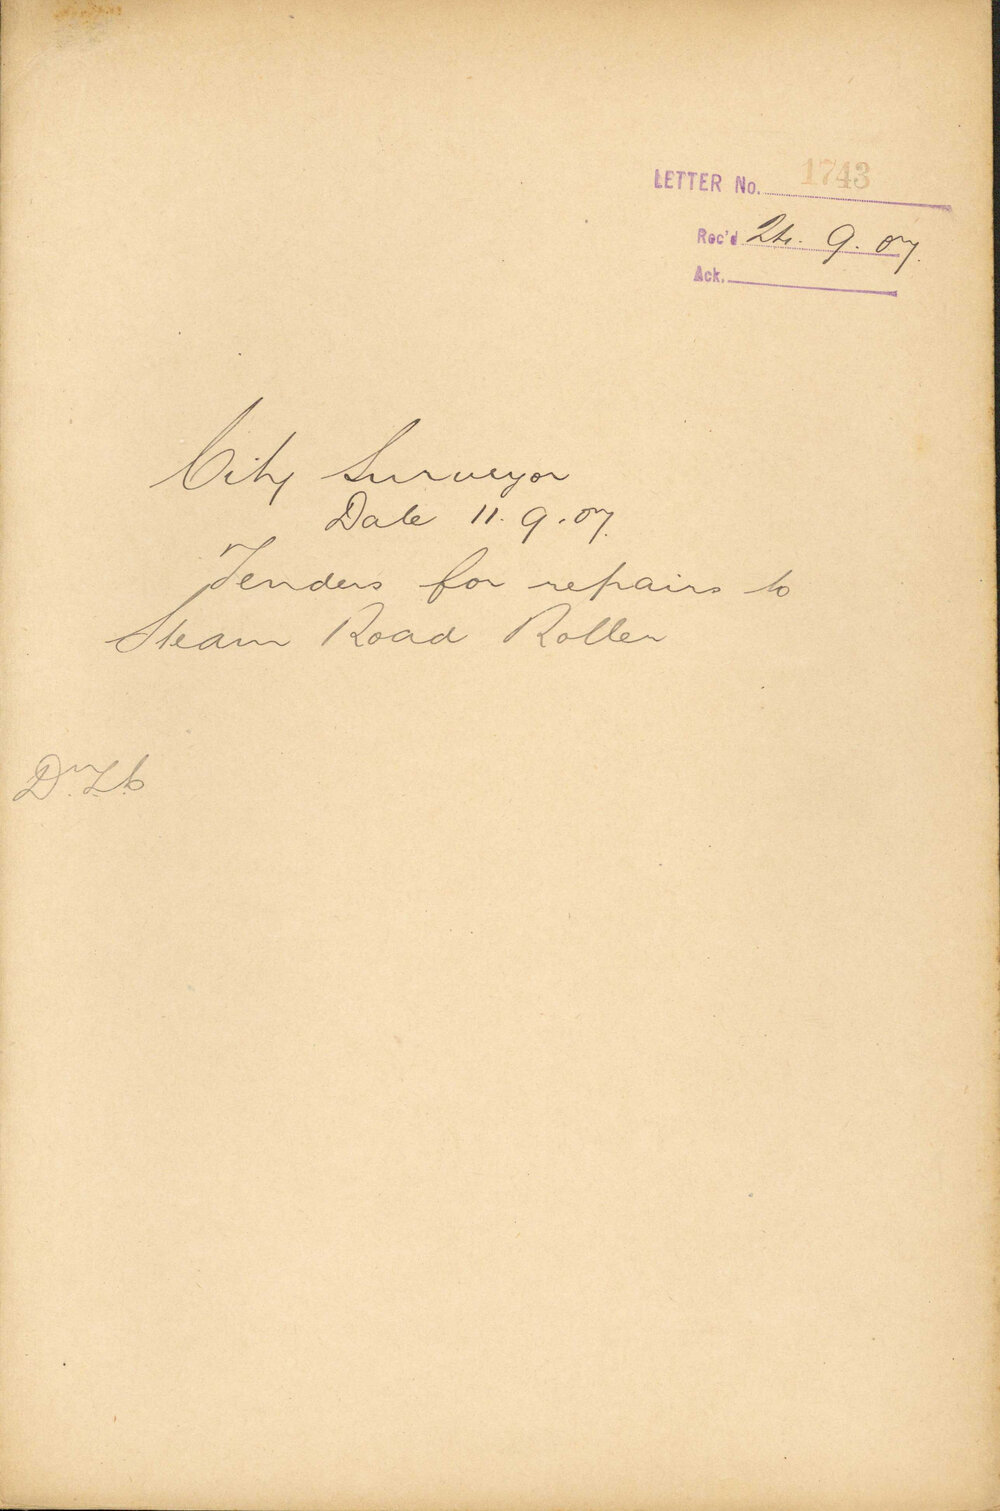 LETTER No. 1743
Rec'd 24. 9. 07.
Ack.
City Surveyor
Date 11. 9. 07.
Tenders for repairs to
Steam Road Roller